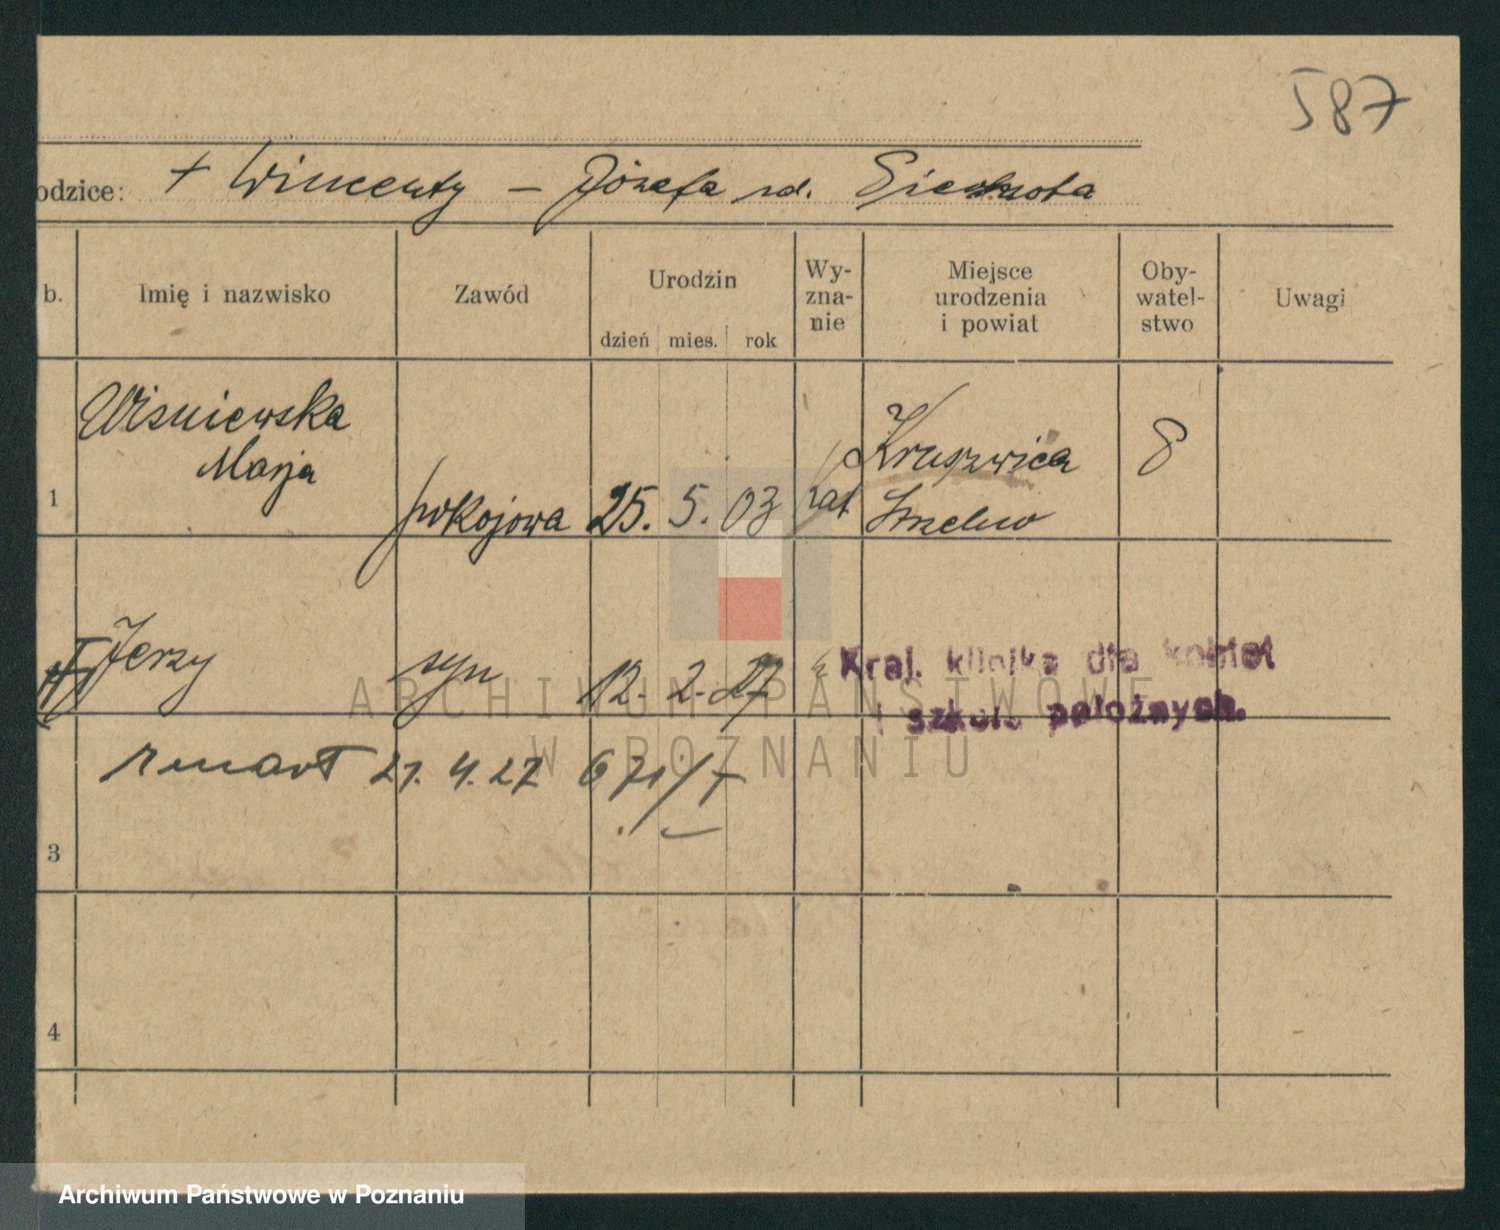 587
odzice: + Wincenty – Józefa rd.
b. Imię i nazwisko Zawód Urodzin Wy-zna-nie Miejsce urodzenia i powiat Oby-watel-stwo Uwagi
dzień mies. rok
Wiśniewska Kruszwica
Marja
1 pokojowa 25. 5. 03 kat Strzelno
Jerzy syn 12. 2. 27 Kraj. klinika dla kobiet
i szkoła położnych.
zmarł 21. 4. 27 671/7
3
4
ARCHIWUM PAŃSTWOWE
W POZNANIU
Archiwum Państwowe w Poznaniu